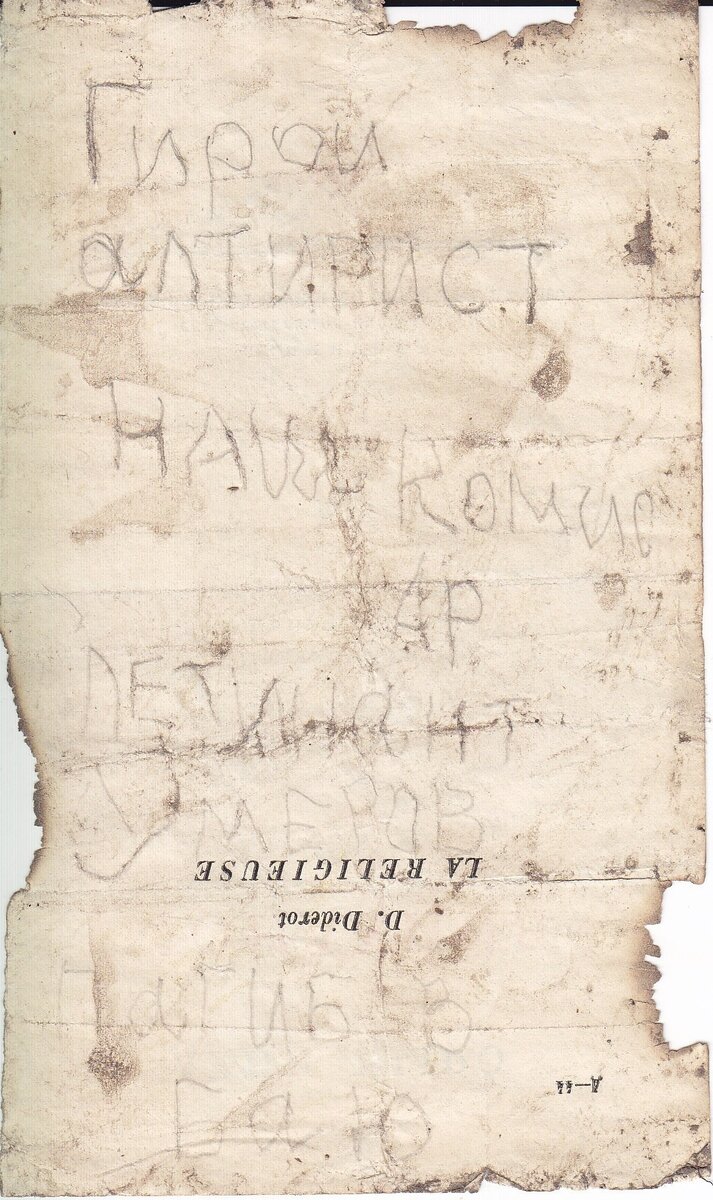 Гирои
алтирист
НАш комис
АР
ЛЕТИНАНТ
УМЕРОВ
LA RELIGIEUSE
D. Diderot
Пагиб В
БАЮ
Д—44